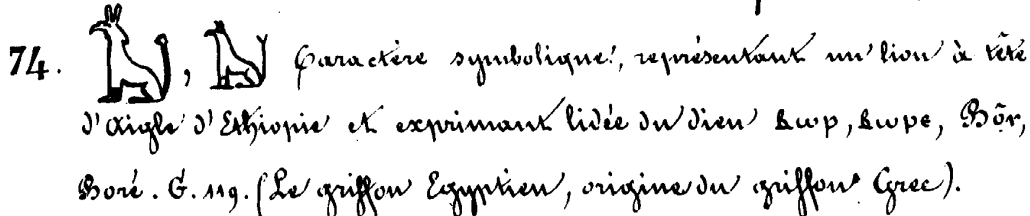 74. , Caractère symbolique, représentant un lion à tête
d'aigle d'Ethiopie et exprimant l'idée du dieu ⲃⲱⲣ, ⲃⲱⲣⲉ, Bôr,
Boré. G. 119. (Le griffon Egyptien, origine du griffon Grec).